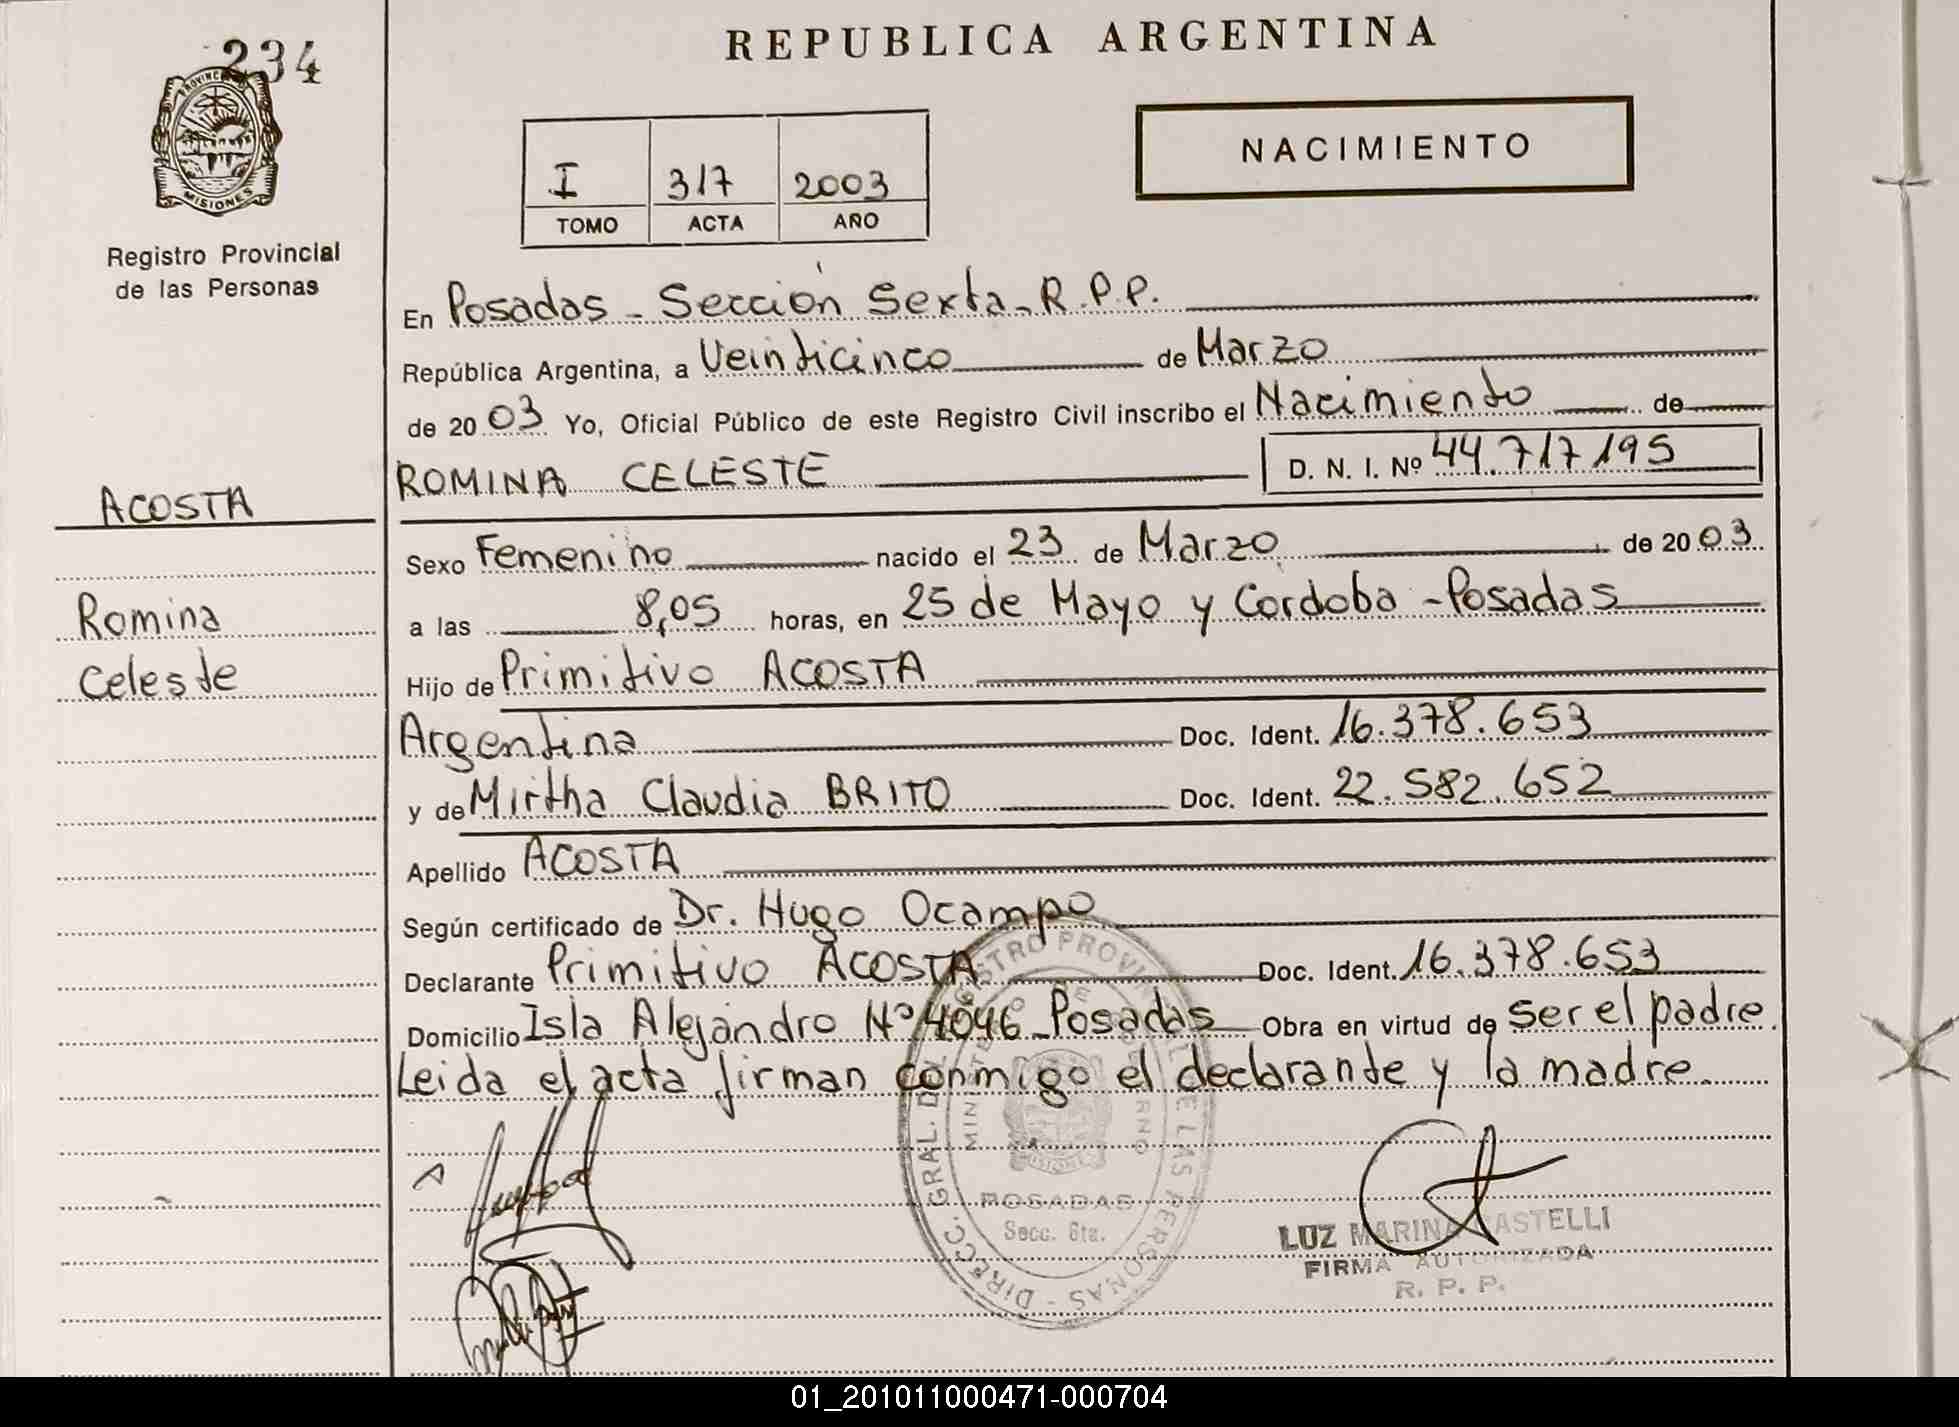 234
PROVINCIA
MISIONES
Registro Provincial
de las Personas
ACOSTA
Romina
Celeste
REPUBLICA ARGENTINA
I 317 2003
TOMO ACTA AÑO
NACIMIENTO
En Posadas - Sección Sexta - R.P.P.
República Argentina, a Veinticinco de Marzo
de 2003 Yo, Oficial Público de este Registro Civil inscribo el Nacimiento de
ROMINA CELESTE D. N. I. Nº 44.717.195
Sexo Femenino nacido el 23 de Marzo de 2003
a las 8,05 horas, en 25 de Mayo y Córdoba - Posadas
Hijo de Primitivo ACOSTA
Argentina Doc. Ident. 16.378.653
y de Mirtha Claudia BRITO Doc. Ident. 22.582.652
Apellido ACOSTA
Según certificado de Dr. Hugo Ocampo
Declarante Primitivo ACOSTA Doc. Ident. 16.378.653
Domicilio Isla Alejandro Nº 4046 - Posadas Obra en virtud de ser el padre.
Leida el acta firman conmigo el declarante y la madre.
DIRECC. GRAL. DEL REGISTRO PROVINCIAL DE LAS PERSONAS
MINISTERIO DE GOBIERNO
MISIONES
POSADAS
Secc. 6ta.
LUZ MARINA CASTELLI
FIRMA AUTORIZADA
R. P. P.
01_201011000471-000704